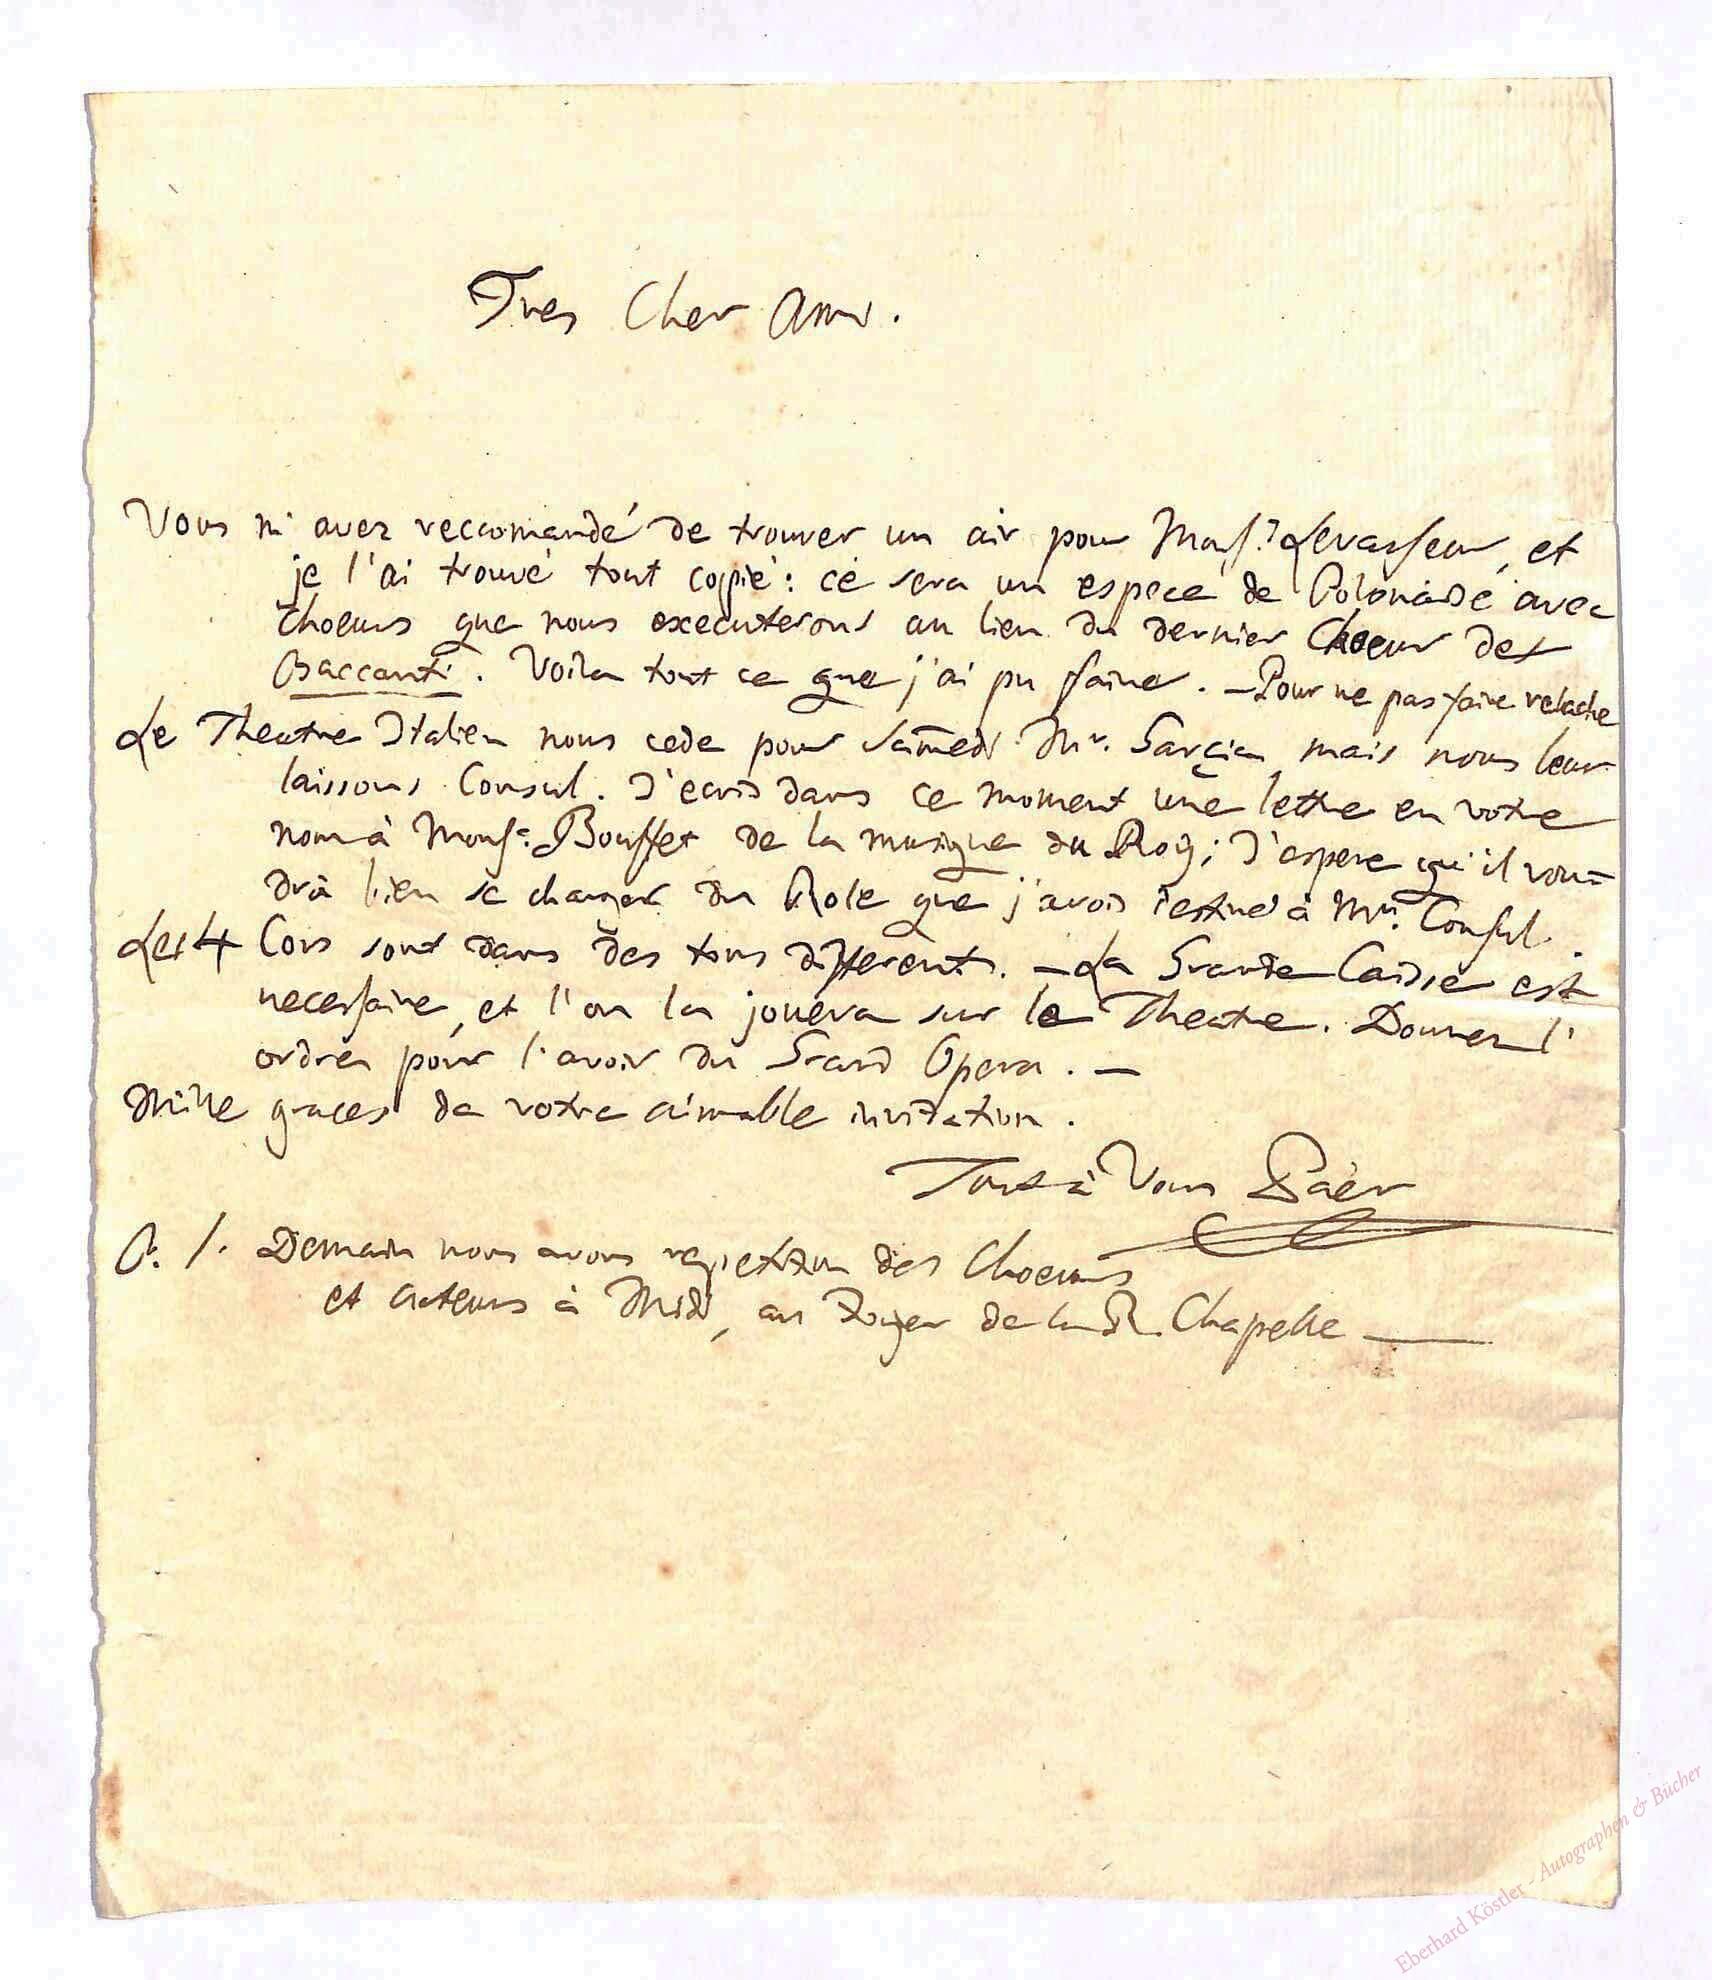 Tres Cher Ami.
Vous m'avez reccomandé de trouver un air pour Mons.r Levasseur, et
je l'ai trouvé tout copié: ce sera un espece de Polonaise avec
Choeurs que nous executerons au lieu du dernier Choeur des
Baccanti. Voila tout ce que j'ai pu faire. – Pour ne pas faire relache
Le Theatre Italien nous cede pour Samedi Mr. Garcia mais nous leur
laissons Consul. J'ecris dans ce moment une lettre en votre
nom à Mons.r Bouffet de la musique du Roy; J'espere qu'il vou=
drà bien se charger du Role que j'avois destiné à Mr. Consul.
Les 4 Cors sont dans des tons differents. – La Grande Caisse est
necessaire, et l'on la jouera sur le Theatre. Donnez l'
ordres pour l'avoir du Grand Opera. –
Mille graces de votre aimable invitation.
Tout à Vous Paër
P. S. Demain nous avons repetition des Choeurs
et acteurs à Midi, au Foyer de la Chapelle
Eberhard Köstler - Autographen & Bücher